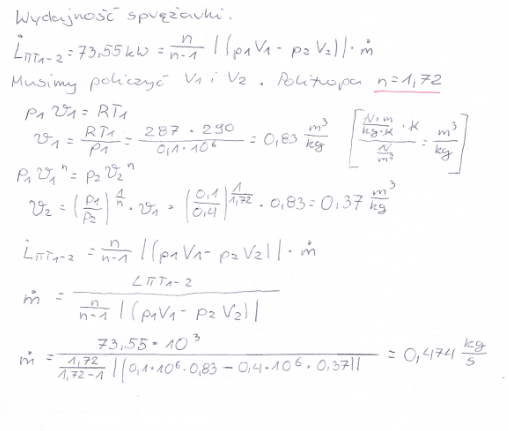 Wydajność sprężarki.
L̇πT1-2 = 73,55 kW = n/(n-1) |(p1V1 - p2V2)| · ṁ
Musimy policzyć V1 i V2. Politropa n=1,72
p1 ϑ1 = RT1
ϑ1 = RT1/p1 = (287 · 290)/(0,1 · 10^6) = 0,83 m^3/kg [(N·m/(kg·K) · K)/(N/m^2) = m^3/kg]
p1 V1^n = p2 V2^n
ϑ2 = (p1/p2)^(1/n) · ϑ1 = (0,1/0,4)^(1/1,72) · 0,83 = 0,37 m^3/kg
L̇πT1-2 = n/(n-1) |(p1V1 - p2V2)| · ṁ
ṁ = LπT1-2 / (n/(n-1) |(p1V1 - p2V2)|)
ṁ = 73,55 · 10^3 / (1,72/(1,72-1) |(0,1·10^6·0,83 - 0,4·10^6 · 0,37)|) = 0,474 kg/s